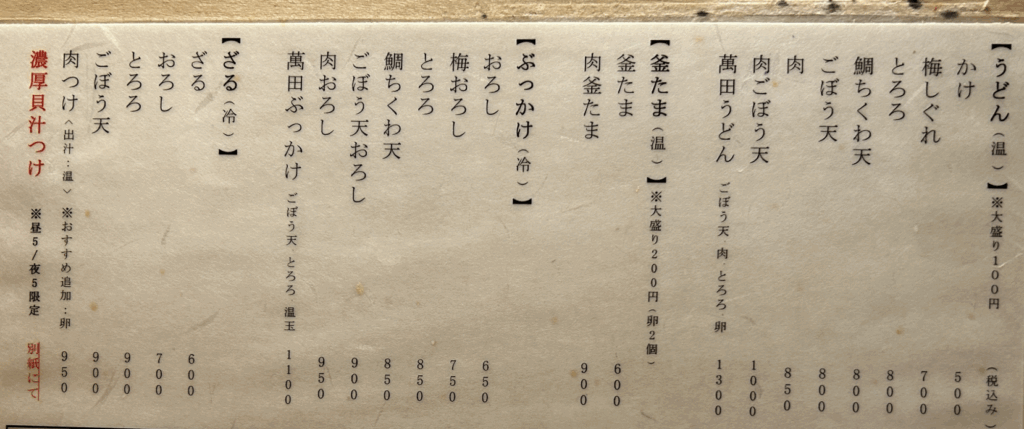 【うどん（温）】※大盛り100円 （税込み）
かけ 500
梅しぐれ 700
とろろ 800
鯛ちくわ天 800
ごぼう天 800
肉 850
肉ごぼう天 1000
萬田うどん ごぼう天 肉 とろろ 卵 1300
【釜たま（温）】※大盛り200円（卵2個）
釜たま 600
肉釜たま 900
【ぶっかけ（冷）】
おろし 650
梅おろし 750
とろろ 850
鯛ちくわ天 850
ごぼう天おろし 900
肉おろし 950
萬田ぶっかけ ごぼう天 とろろ 温玉 1100
【ざる（冷）】
ざる 600
おろし 700
とろろ 900
ごぼう天 900
肉つけ〈出汁：温〉※おすすめ追加：卵 950
濃厚貝汁つけ ※昼5/夜5限定 別紙にて